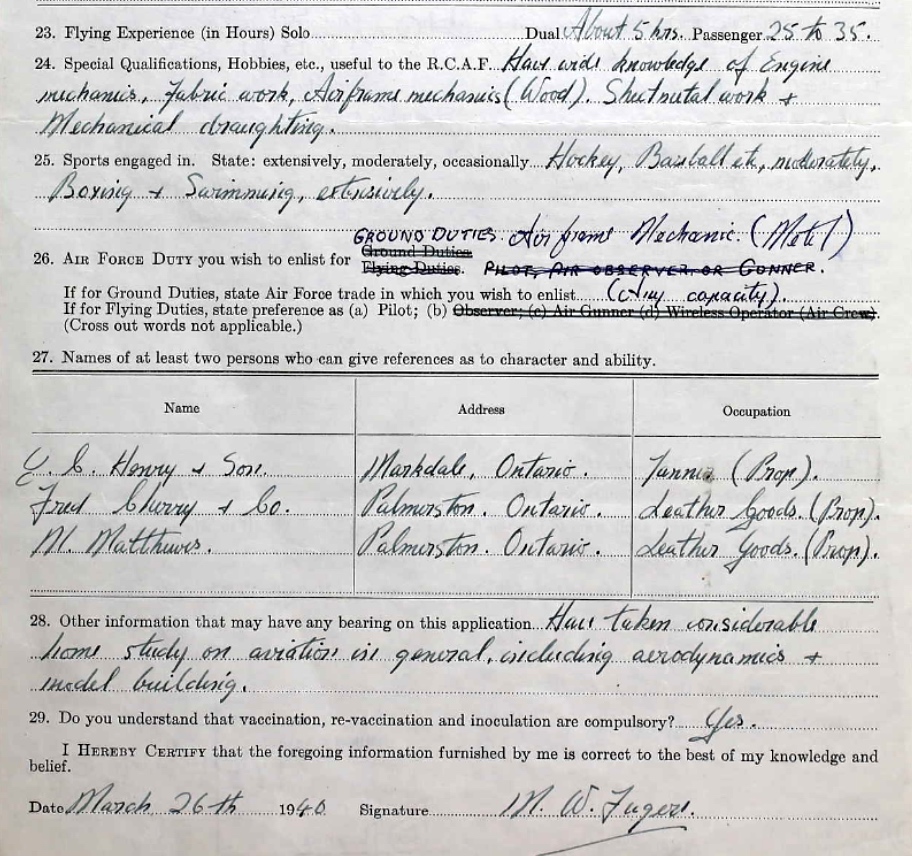 23. Flying Experience (in Hours) Solo Dual About 5 hrs. Passenger 25 to 35.
24. Special Qualifications, Hobbies, etc., useful to the R.C.A.F. Have wide knowledge of Engine
mechanics, Fabric work, Airframe mechanics (Wood). Sheetmetal work +
Mechanical draughting.
25. Sports engaged in. State: extensively, moderately, occasionally Hockey, Baseball etc, moderately,
Boxing + Swimming, extensively.
GROUND DUTIES. Air frame Mechanic. (Metal)
Ground Duties
26. AIR FORCE DUTY you wish to enlist for Flying Duties. PILOT, AIR OBSERVER OR GUNNER.
If for Ground Duties, state Air Force trade in which you wish to enlist (Any capacity).
If for Flying Duties, state preference as (a) Pilot; (b) Observer; (c) Air Gunner (d) Wireless Operator (Air Crew).
(Cross out words not applicable.)
27. Names of at least two persons who can give references as to character and ability.
Name Address Occupation
C. Henry + Son. Markdale, Ontario. Tanner (Prop).
Fred + Co. Palmerston. Ontario. Leather Goods. (Prop).
M. Matthews. Palmerston. Ontario. Leather Goods. (Prop).
28. Other information that may have any bearing on this application Have taken considerable
home study on aviation in general, including aerodynamics +
model building.
29. Do you understand that vaccination, re-vaccination and inoculation are compulsory? Yes.
I HEREBY CERTIFY that the foregoing information furnished by me is correct to the best of my knowledge and
belief.
Date March 26th 1940 Signature M. W. Fugere.